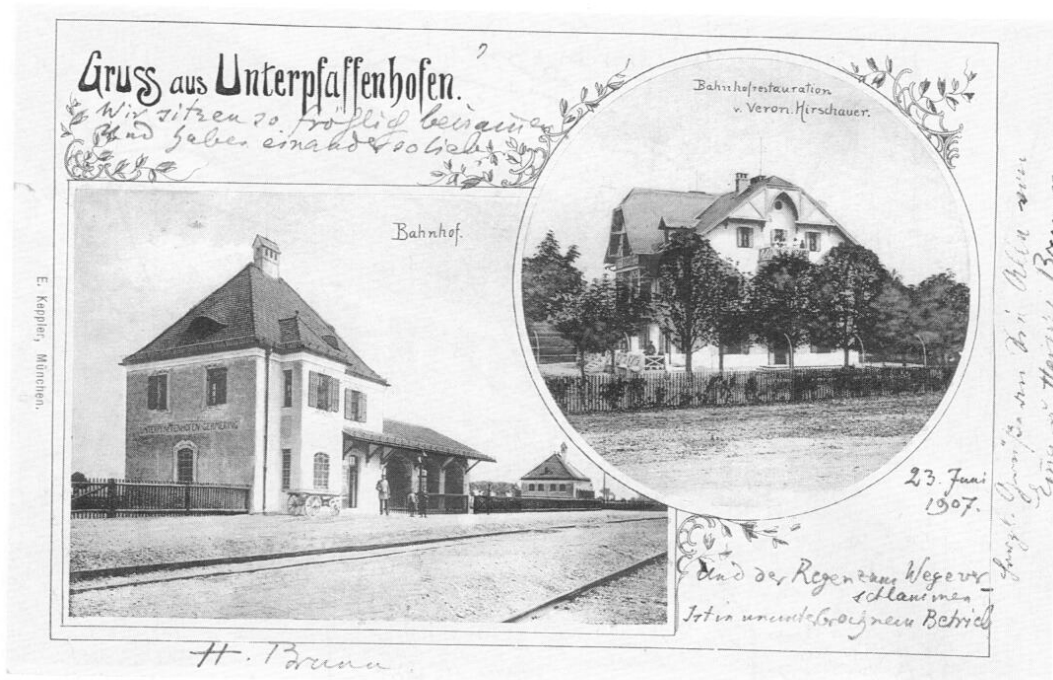 Gruss aus Unterpfaffenhofen.
Wir sitzen so fröhlich beisammen
Und haben einander so lieb
Bahnhofrestauration
v. Veron. Hirschauer.
Bahnhof.
UNTERPFAFFENHOFEN-GERMERING
E. Keppler, München.
23. Juni
1907.
Und der Regen zum Wegever
schlammen
Ist in ununterbrochnem Betrieb
H. Brunn